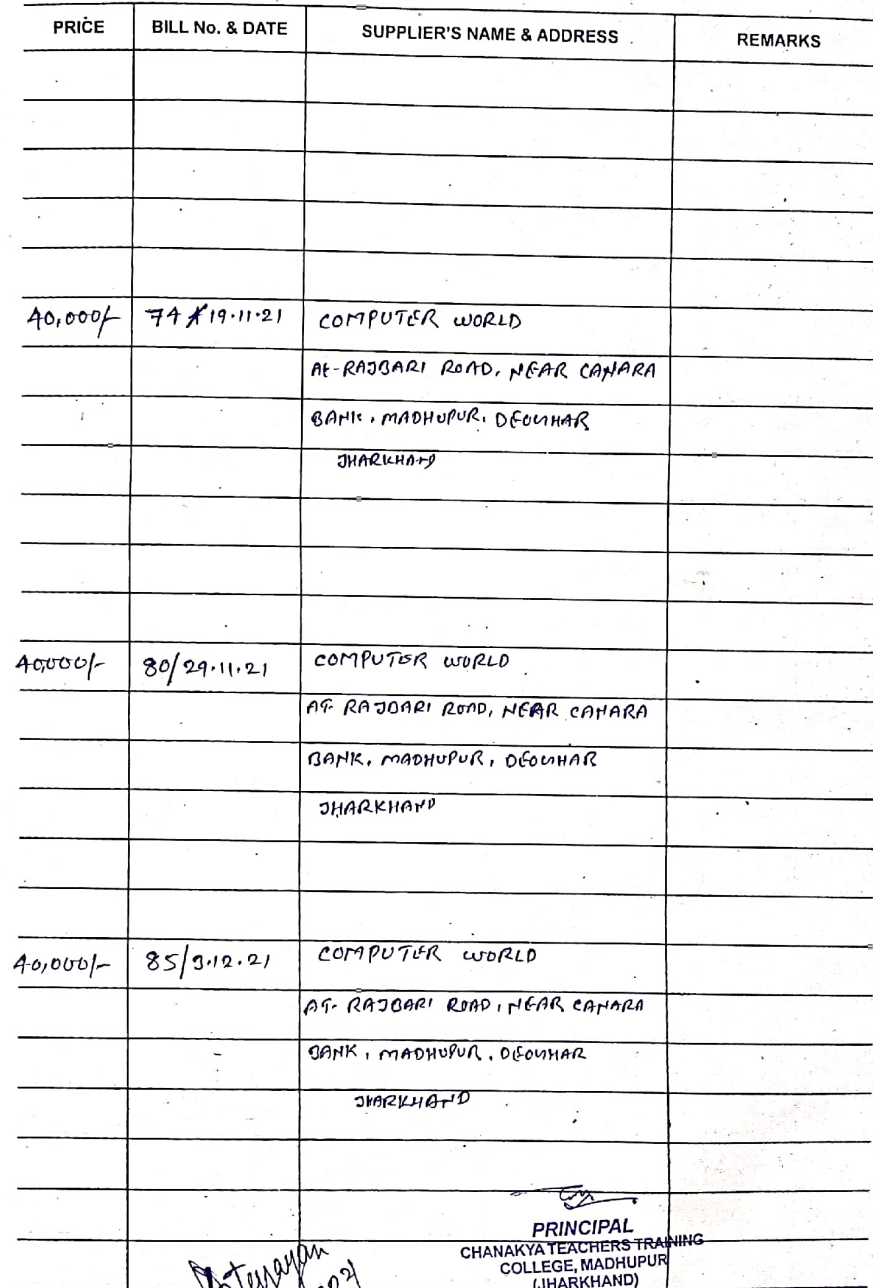 PRICE BILL No. & DATE SUPPLIER'S NAME & ADDRESS REMARKS
40,000/- 74 / 19.11.21 COMPUTER WORLD
At-RAJBARI ROAD, NEAR CANARA
BANK, MADHUPUR, DEOGHAR
JHARKHAND
40,000/- 80/29.11.21 COMPUTER WORLD
AT- RAJBARI ROAD, NEAR CANARA
BANK, MADHUPUR, DEOGHAR
JHARKHAND
40,000/- 85/3.12.21 COMPUTER WORLD
AT- RAJBARI ROAD, NEAR CANARA
BANK, MADHUPUR, DEOGHAR
JHARKHAND
PRINCIPAL
CHANAKYA TEACHERS TRAINING
COLLEGE, MADHUPUR
(JHARKHAND)